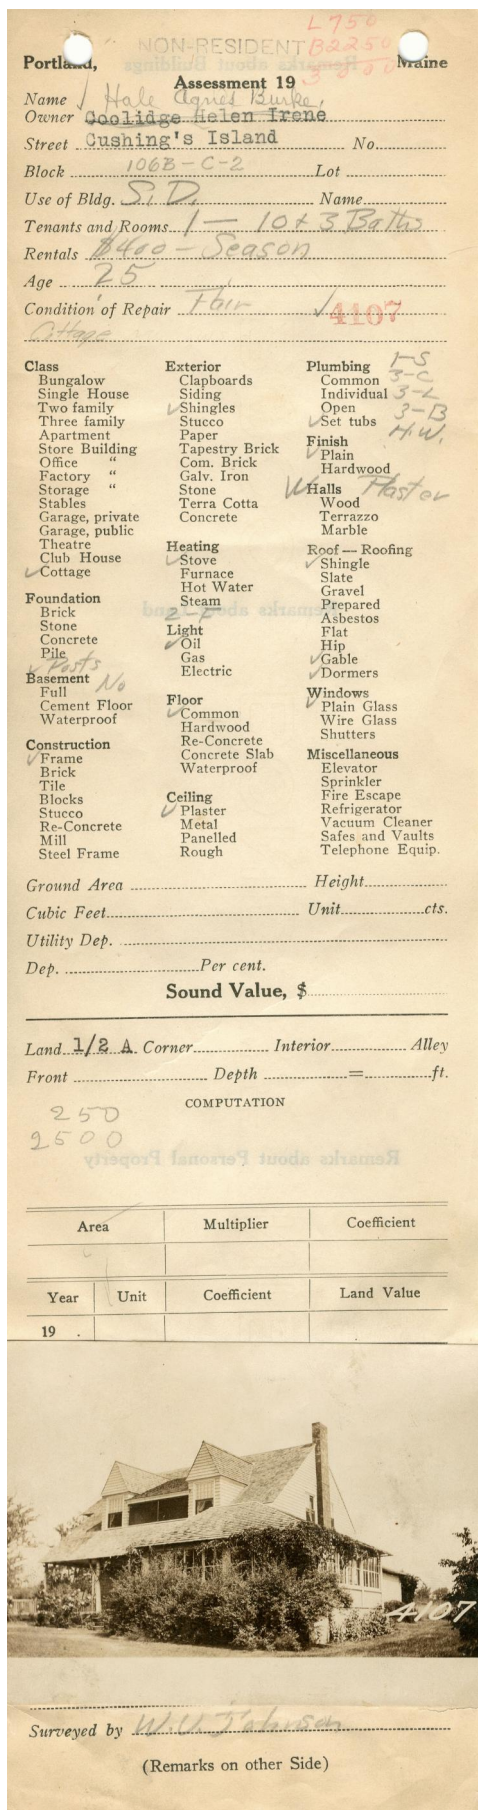 L 750
NON-RESIDENT B2250
Portland, Maine
3000
Assessment 19
Name Hale Agnes Burke,
Owner Coolidge Helen Irene
Street Cushing's Island No.
Block 106B-C-2 Lot
Use of Bldg. S.D. Name
Tenants and Rooms 1 — 10 + 3 Baths
Rentals $400 - Season
Age 25
Condition of Repair Fair 4107
Cottage
Class
Bungalow
Single House
Two family
Three family
Apartment
Store Building
Office "
Factory "
Storage "
Stables
Garage, private
Garage, public
Theatre
Club House
Cottage
Foundation
Brick
Stone
Concrete
Pile
Posts
Basement
Full No
Cement Floor
Waterproof
Construction
Frame
Brick
Tile
Blocks
Stucco
Re-Concrete
Mill
Steel Frame
Exterior
Clapboards
Siding
Shingles
Stucco
Paper
Tapestry Brick
Com. Brick
Galv. Iron
Stone
Terra Cotta
Concrete
Heating
Stove
Furnace
Hot Water
Steam
2-F
Light
Oil
Gas
Electric
Floor
Common
Hardwood
Re-Concrete
Concrete Slab
Waterproof
Ceiling
Plaster
Metal
Panelled
Rough
Plumbing 1-S
Common 3-C
Individual 3-L
Open 3-B
Set tubs H.W.
Finish
Plain
Hardwood
Halls Plaster
Wood
Terrazzo
Marble
Roof — Roofing
Shingle
Slate
Gravel
Prepared
Asbestos
Flat
Hip
Gable
Dormers
Windows
Plain Glass
Wire Glass
Shutters
Miscellaneous
Elevator
Sprinkler
Fire Escape
Refrigerator
Vacuum Cleaner
Safes and Vaults
Telephone Equip.
Ground Area Height
Cubic Feet Unit cts.
Utility Dep.
Dep. Per cent.
Sound Value, $
Land 1/2 A Corner Interior Alley
Front Depth = ft.
COMPUTATION
250
2500
Area Multiplier Coefficient
Year Unit Coefficient Land Value
19 .
4107
Surveyed by W.V. Johnson
(Remarks on other Side)